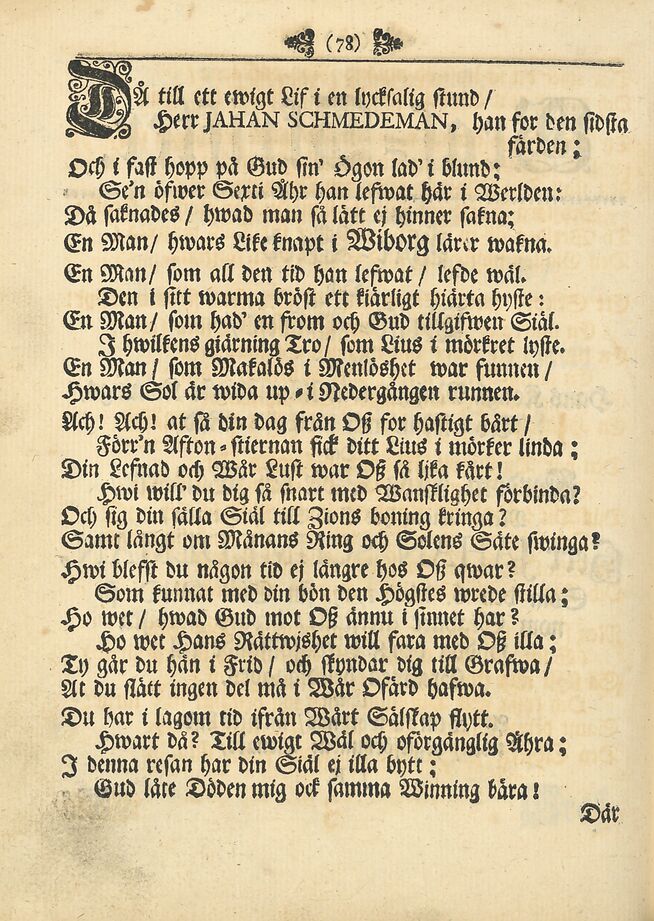 (78)
DÅ till ett ewigt Lif i en lycksalig stund /
Herr JAHAN SCHMEDEMAN, han for den sidsta
färden ;
Och i fast hopp på Gud sin' Ögon lad' i blund;
Se'n öfwer Sexti Åhr han lefwat här i Werlden:
Då saknades / hwad man så lätt ej hinner sakna;
En Man / hwars Like knapt i Wiborg lärer wakna.
En Man / som all den tid han lefwat / lefde wäl.
Den i sitt warma bröst ett kiärligt hiärta hyste :
En Man / som had' en from och Gud tillgifwen Siäl.
I hwilkens giärning Tro / som Lius i mörkret lyste.
En Man / som Makalös i Menlöshet war funnen /
Hwars Sol är wida up = i Nedergången runnen.
Ach! Ach! at så din dag från Oß for hastigt bårt /
Förr'n Afton = stiernan fick ditt Lius i mörker linda ;
Din Lefnad och Wår Lust war Oß så lika kårt !
Hwi will' du dig så snart med Wansklighet förbinda?
Och sig din sälla Siäl till Zions boning kringa ?
Samt långt om Månans Ring och Solens Säte swinga?
Hwi blefst du någon tid ej längre hos Oß qwar ?
Som kunnat med din bön den Högstes wrede stilla ;
Ho wet / hwad Gud mot Oß ännu i sinnet har ?
Ho wet Hans Rättwjshet will fara med Oß illa ;
Ty går du hän i Frid / och skyndar dig till Grafwa /
At du slätt ingen del må i Wår Ofärd hafwa.
Du har i lagom tid ifrån Wårt Sälskap flytt.
Hwart då? Till ewigt Wäl och oförgänglig Ähra ;
I denna resan har din Siäl ej illa bytt ;
Gud låte Döden mig ock samma Winning bära !
Där